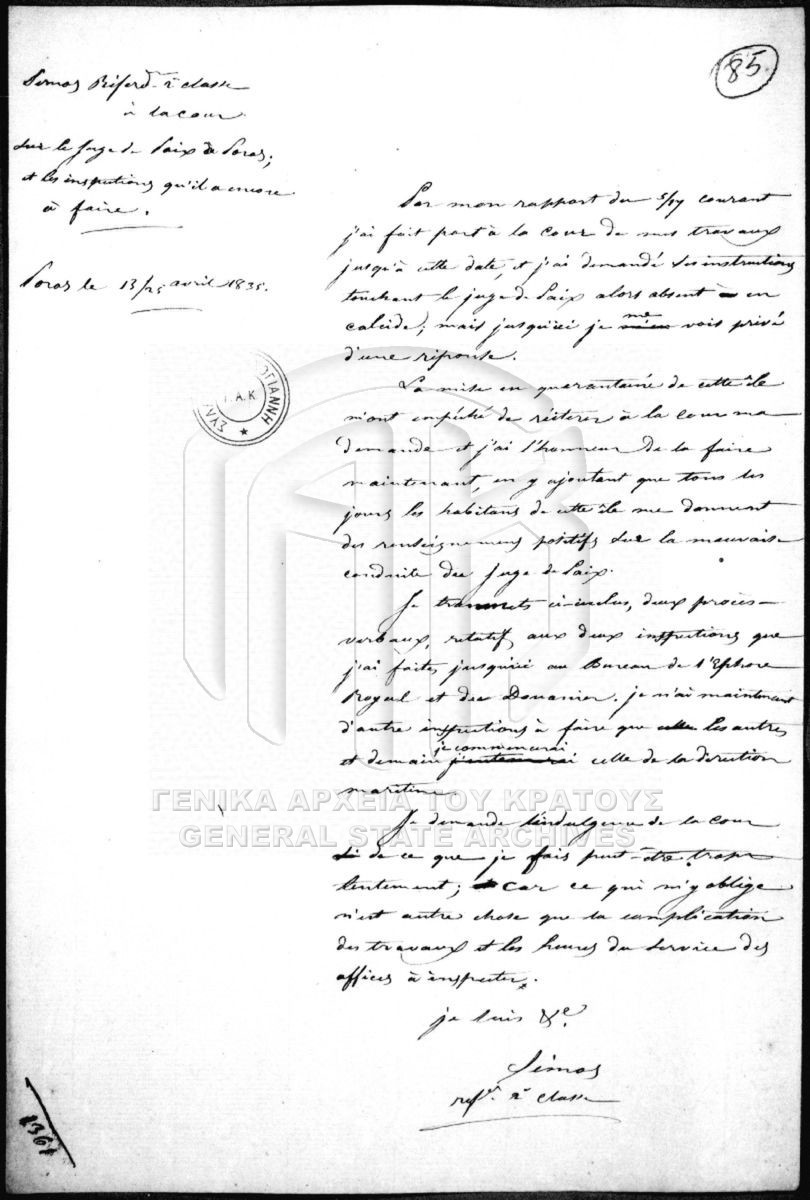 85.
Simos Référ. 2e classe
à la cour
sur le juge de Paix de Poros;
et les inspections qu'il a encore
à faire.
Poros le 13/25 avril 1835.
Par mon rapport du 5/17 courant
j'ai fait part à la cour de mes travaux
jusqu'à cette date, et j'ai demandé des instructions
touchant le juge de Paix alors absent en
calcide; mais jusqu'ici je me vois privé
d'une réponse.
La mise en quarantaine de cette île
m'ont empêché de réiterer à la cour ma
demande et j'ai l'honneur de la faire
maintenant, en y ajoutant que tous les
jours les habitans de cette île me donnent
des renseignemens positifs sur la mauvaise
conduite du Juge de Paix.
Je transmets ci-inclus, deux procès-
verbaux, relatifs aux deux inspections que
j'ai faites jusqu'ici au Bureau de l'Ephore
Royal et du Douanier. je n'ai maintenant
d'autre inspections à faire que celle les autres
et demain je commencerai celle de la direction
maritime
Je demande l'indulgence de la cour
de ce que je fais peut-être trop
lentement; car ce qui m'y oblige
n'est autre chose que la complication
des travaux et les heures du service des
offices à inspecter.
je suis &c.
Simos
réf. 2e classe
ΓΙΑΝΝΗ
Γ.Α.Κ
ΣΥΛ
ΓΕΝΙΚΑ ΑΡΧΕΙΑ ΤΟΥ ΚΡΑΤΟΥΣ
GENERAL STATE ARCHIVES